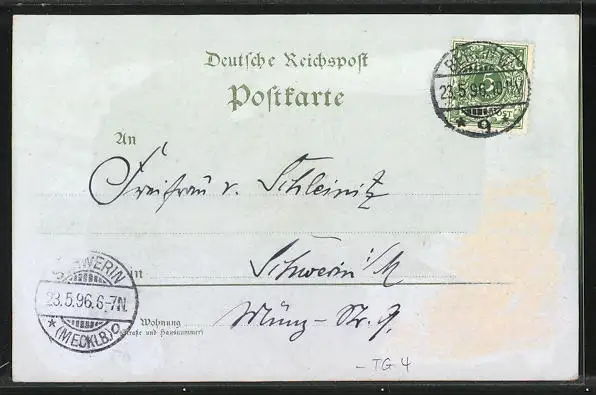 Deutsche Reichspost
Postkarte
BERLIN W.
23.5.96.10-11V.
* 9.
5
An
Freifrau v. Schleinitz
in Schwerin i/M
Wohnung
(Straße und Hausnummer)
Münz-Str. 9.
SCHWERIN
23.5.96.6-7N.
* (MECKLB.)
TG 4